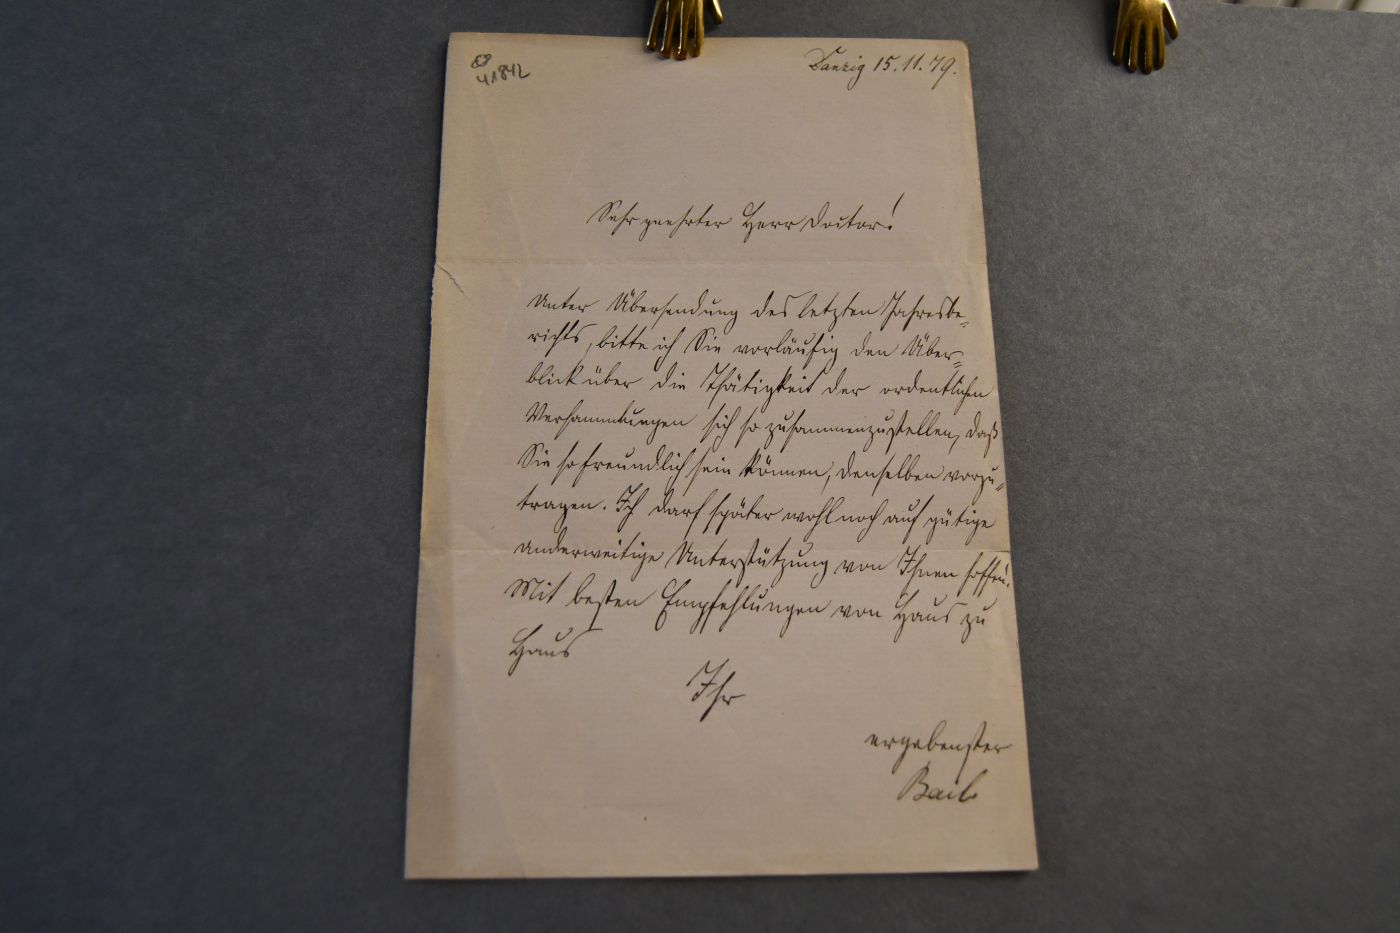 41842
Danzig 15.11.79.
Sehr geehrter Herr Doctor!
Unter Übersendung des letzten Jahresbe-
richts, bitte ich Sie vorläufig den Über-
blick über die Thätigkeit der ordentlichen
Versammlungen sich so zusammenzustellen, daß
Sie so freundlich sein können, denselben vorzu-
tragen. Ich darf später wohl noch auf gütige
anderweitige Unterstützung von Ihnen hoffen.
Mit besten Empfehlungen von Haus zu
Haus
Ihr
ergebenster
Bail